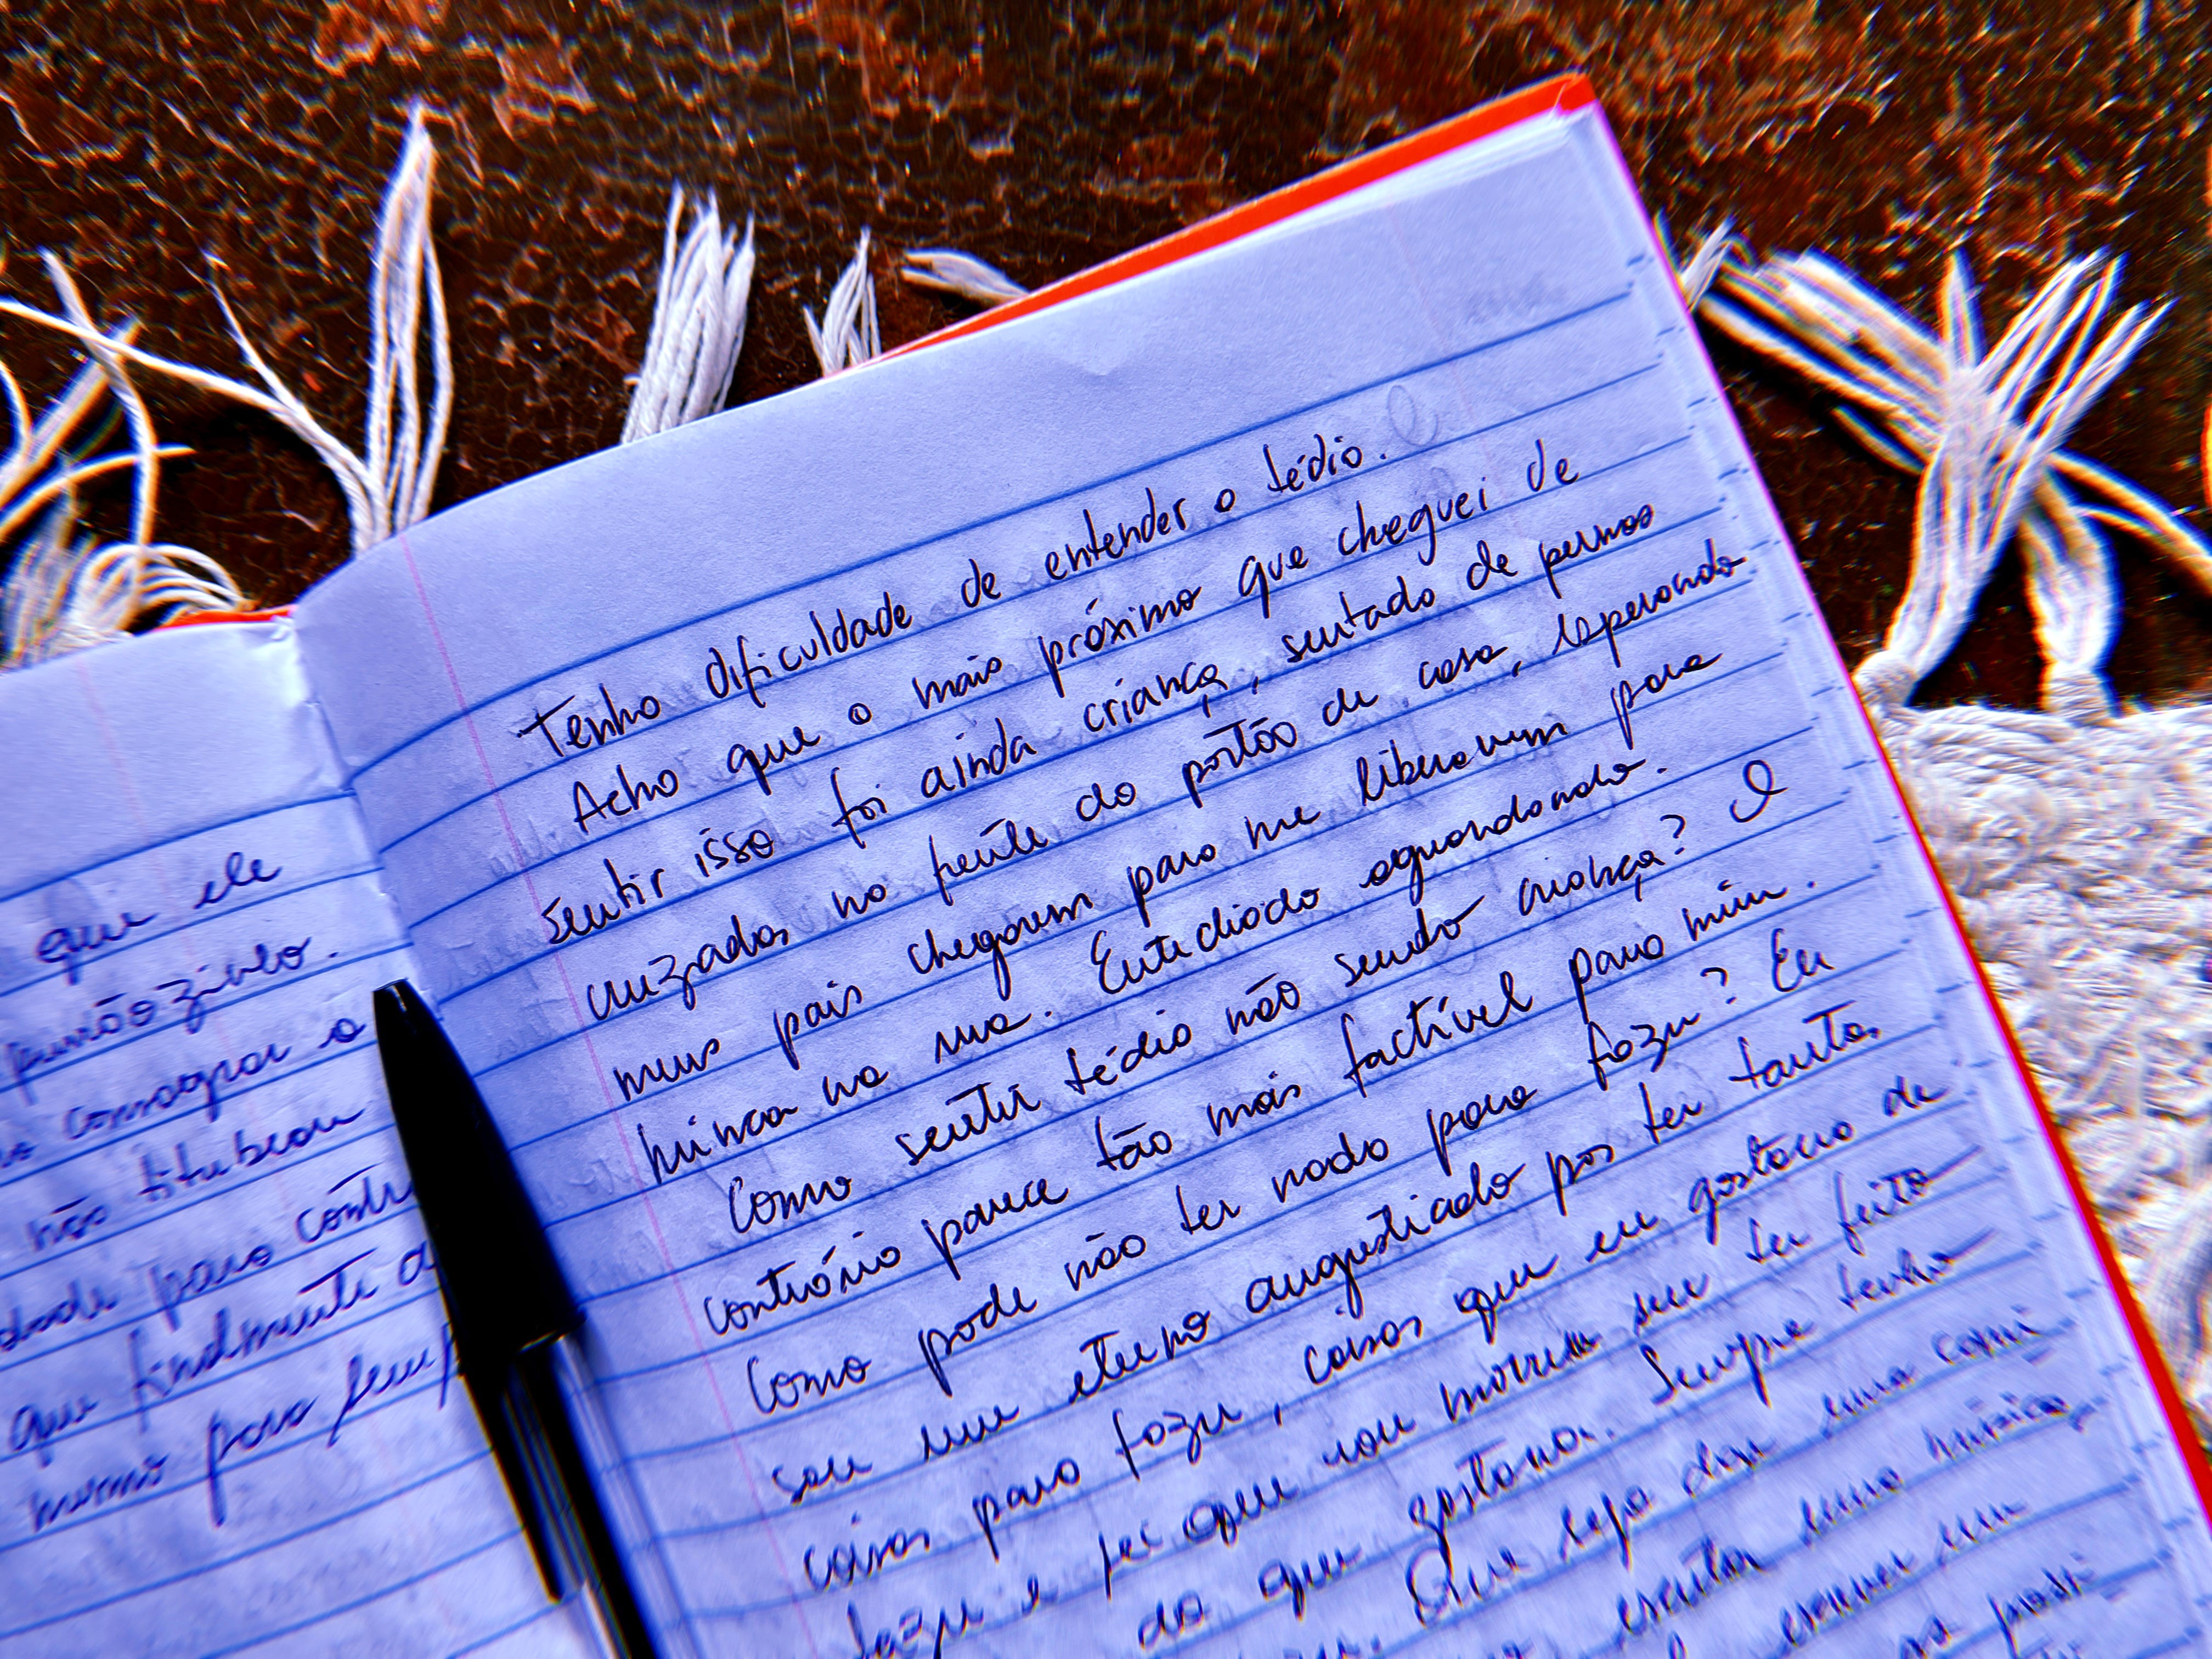 que ele
consagrar o
não titubeou
para contr
que finalmente a
mesmo para semp
Tenho dificuldade de entender o tédio.
Acho que o mais próximo que cheguei de
sentir isso foi ainda criança, sentado de pernas
cruzadas na frente do portão de casa, esperando
meus pais chegarem para me liberarem para
brincar na rua. Entediado aguardando.
Como sentir tédio não sendo criança? O
contrário parece tão mais factível para mim.
Como pode não ter nada para fazer? Eu
sou um eterno angustiado por ter tantas
coisas para fazer, coisas que eu gostaria de
fazer e sei que vou morrer sem ter feito
do que gostaria. Sempre tenho
Que seja dar uma cami
escutar uma música,
escrever um